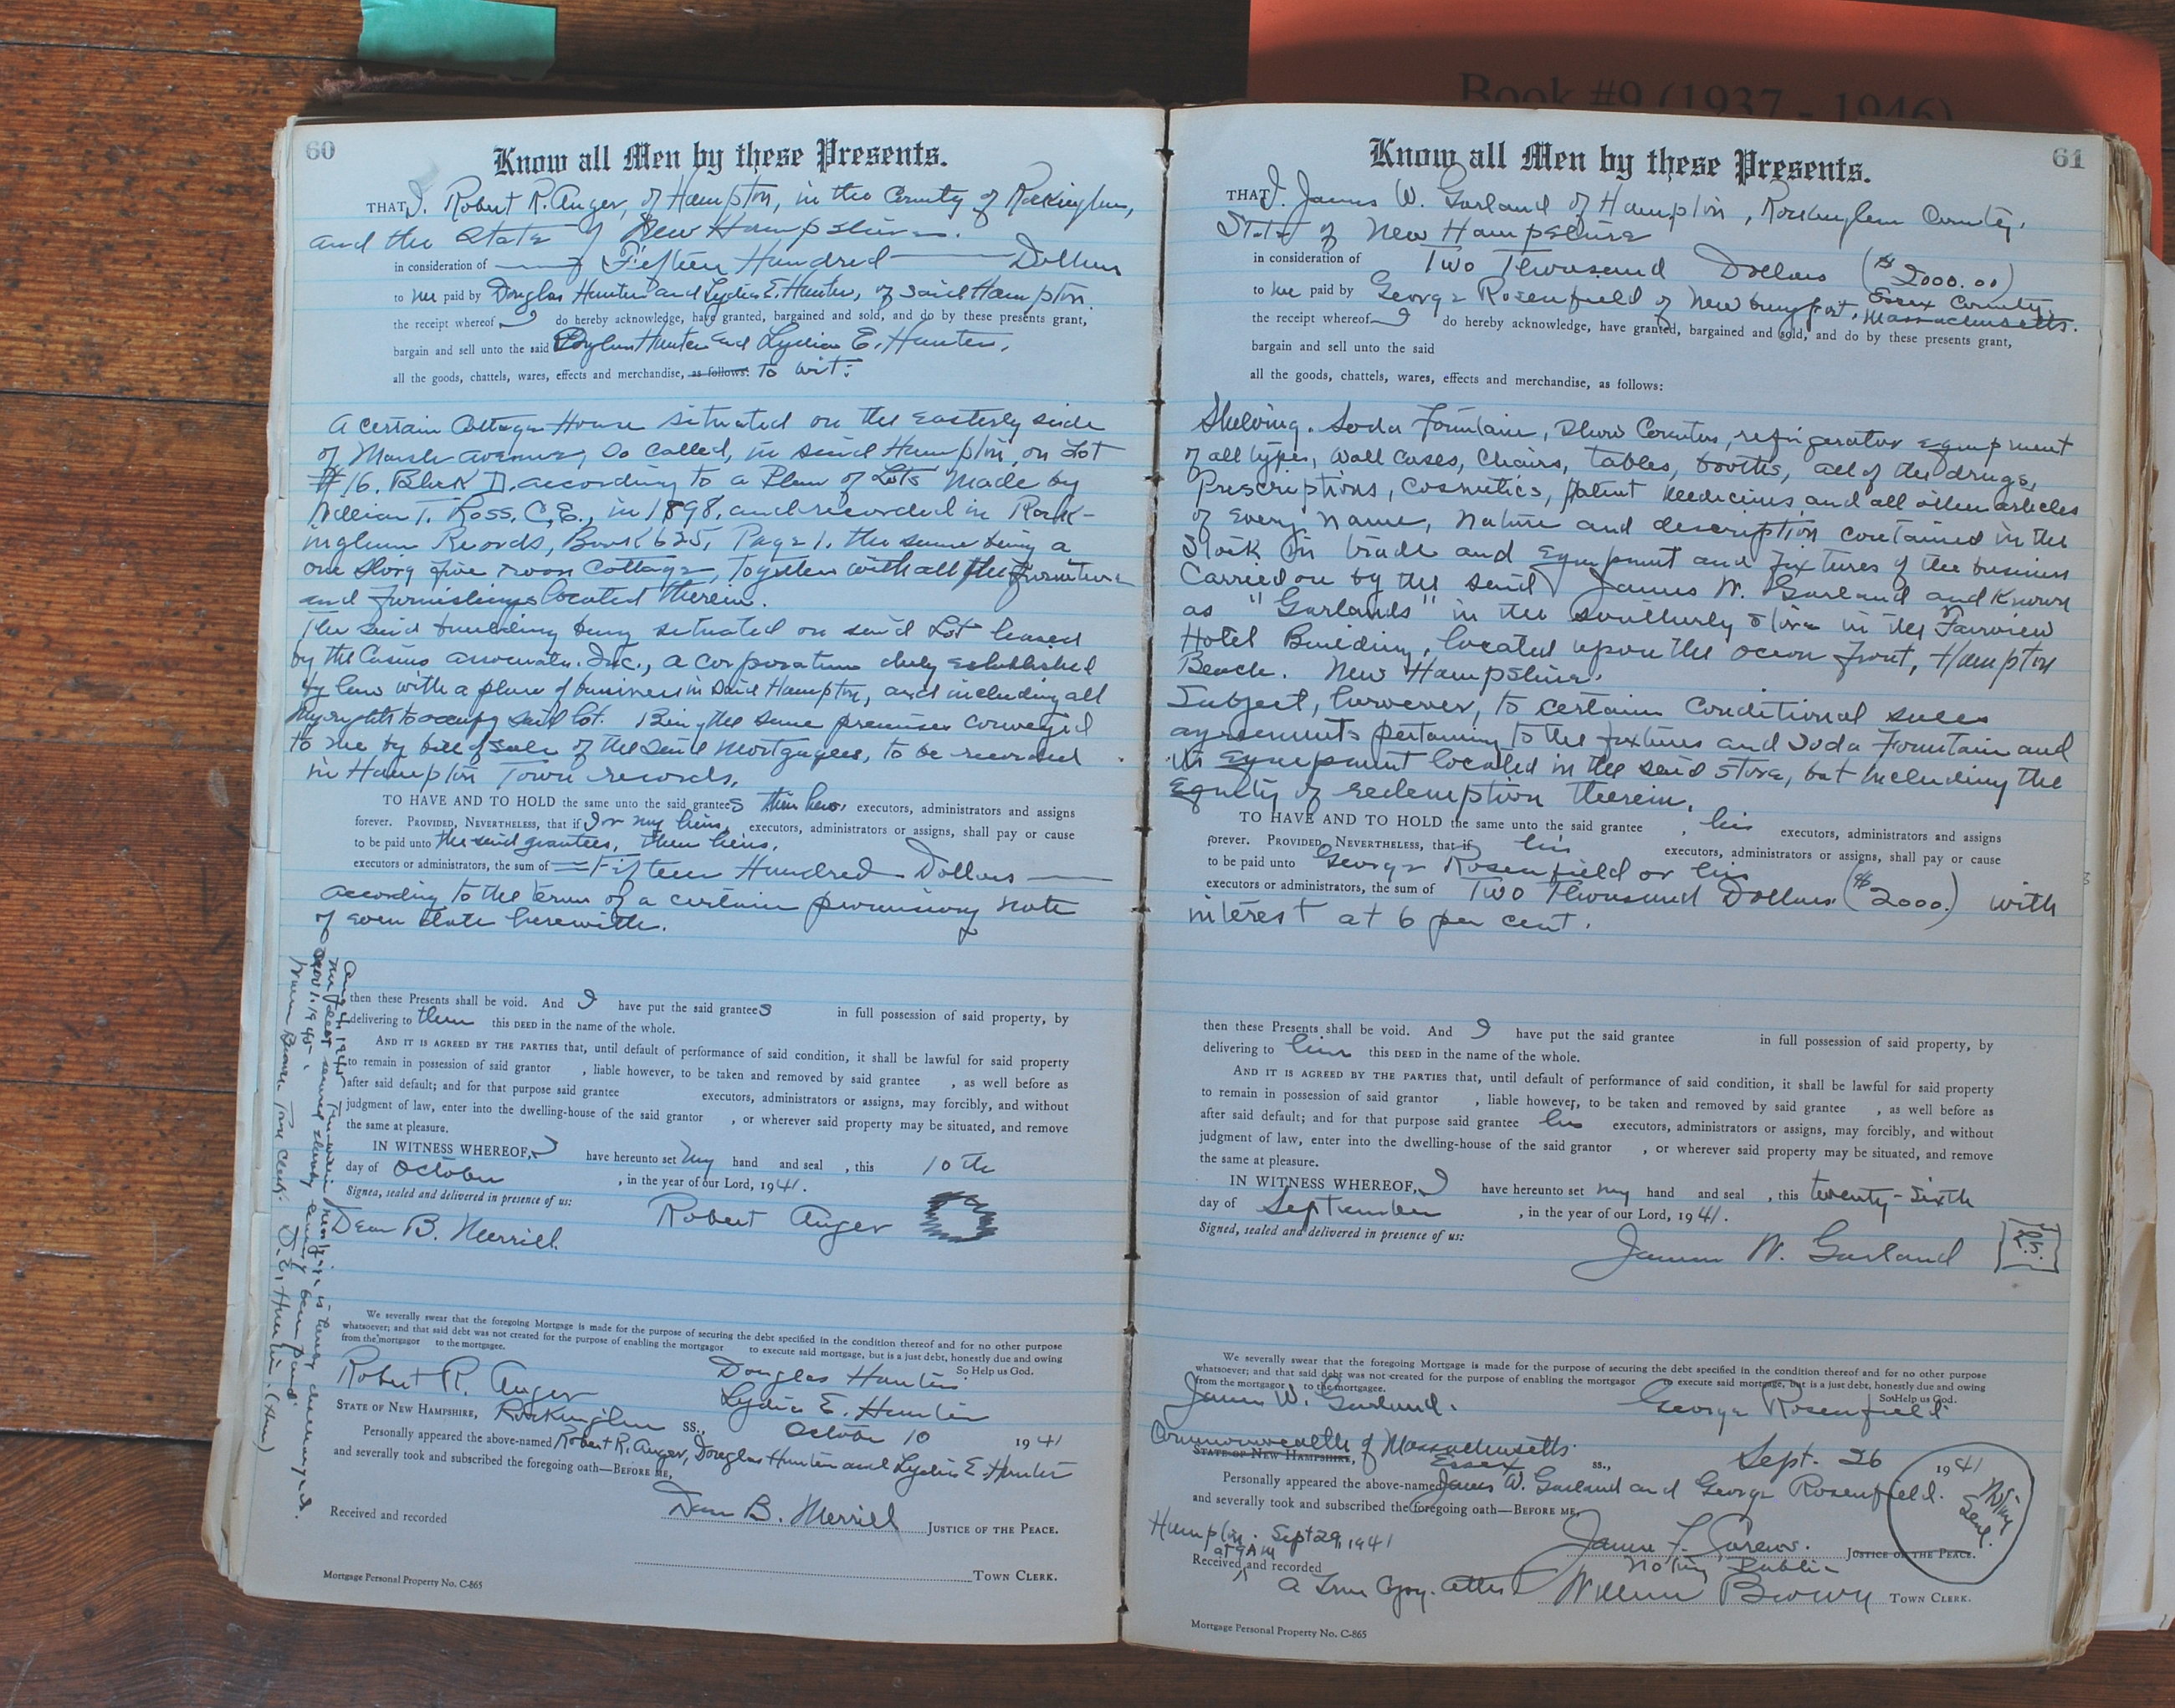 Book #9 (1937 - 1946)
60
Know all Men by these Presents.
THAT I, Robert R. Auger, of Hampton, in the County of Rockingham,
and the State of New Hampshire.
in consideration of Fifteen Hundred Dollars
to me paid by Douglas Hunter and Lydia E. Hunter, of said Hampton.
the receipt whereof I do hereby acknowledge, have granted, bargained and sold, and do by these presents grant,
bargain and sell unto the said Douglas Hunter and Lydia E. Hunter,
all the goods, chattels, wares, effects and merchandise, as follows: to wit:
A certain Cottage House situated on the easterly side
of Marsh avenue, so called, in said Hampton, on Lot
#16. Block D. according to a Plan of Lots made by
William T. Ross, C.E., in 1898, and recorded in Rock-
ingham Records, Book 625, Page 1. the same being a
one story five room cottage, together with all the furniture
and furnishings located therein.
The said building being situated on said Lot leased
by the Casino Associates. Inc., a corporation duly established
by law with a place of business in said Hampton, and including all
my rights to occupy said lot. Being the same premises conveyed
to me by bill of sale of the said Mortgagees, to be recorded
in Hampton Town records.
TO HAVE AND TO HOLD the same unto the said grantees their heirs, executors, administrators and assigns
forever. PROVIDED, NEVERTHELESS, that if I or my heirs, executors, administrators or assigns, shall pay or cause
to be paid unto the said grantees, their heirs,
executors or administrators, the sum of Fifteen Hundred Dollars
according to the terms of a certain promissory note
of even date herewith.
then these Presents shall be void. And I have put the said grantees in full possession of said property, by
delivering to them this DEED in the name of the whole.
AND IT IS AGREED BY THE PARTIES that, until default of performance of said condition, it shall be lawful for said property
to remain in possession of said grantor , liable however, to be taken and removed by said grantee , as well before as
after said default; and for that purpose said grantee executors, administrators or assigns, may forcibly, and without
judgment of law, enter into the dwelling-house of the said grantor , or wherever said property may be situated, and remove
the same at pleasure.
IN WITNESS WHEREOF, I have hereunto set my hand and seal , this 10th
day of October , in the year of our Lord, 1941.
Signed, sealed and delivered in presence of us:
Dean B. Merrill. Robert Auger
We severally swear that the foregoing Mortgage is made for the purpose of securing the debt specified in the condition thereof and for no other purpose
whatsoever; and that said debt was not created for the purpose of enabling the mortgagor to execute said mortgage, but is a just debt, honestly due and owing
from the mortgagor to the mortgagee. So Help us God.
Robert R. Auger Douglas Hunter
Lydia E. Hunter
STATE OF NEW HAMPSHIRE, Rockingham SS., October 10 1941
Personally appeared the above-named Robert R. Auger, Douglas Hunter and Lydia E. Hunter
and severally took and subscribed the foregoing oath—BEFORE ME,
Dean B. Merrill JUSTICE OF THE PEACE.
Received and recorded
TOWN CLERK.
Mortgage Personal Property No. C-865
The within mortgage is hereby discharged.
the debt secured thereby having been paid
William Brown Town Clerk.
61
Know all Men by these Presents.
THAT I, James W. Garland of Hampton, Rockingham County,
State of New Hampshire
in consideration of Two Thousand Dollars ($2000.00)
to me paid by George Rosenfield of Newburyport, Essex County, Massachusetts.
the receipt whereof I do hereby acknowledge, have granted, bargained and sold, and do by these presents grant,
bargain and sell unto the said
all the goods, chattels, wares, effects and merchandise, as follows:
Shelving. Soda Fountain, Show Counters, refrigerator equipment
of all types, wall cases, chairs, tables, booths, all of the drugs,
Prescriptions, cosmetics, patent medicines, and all other articles
of every name, nature and description contained in the
stock in trade and equipment and fixtures of the business
carried on by the said James W. Garland and known
as "Garlands" in the southerly store in the Fairview
Hotel Building, located upon the ocean front, Hampton
Beach. New Hampshire.
Subject, however, to certain conditional sales
agreements pertaining to the fixtures and Soda Fountain and
its equipment located in the said store, but including the
Equity of redemption therein.
TO HAVE AND TO HOLD the same unto the said grantee , his executors, administrators and assigns
forever. PROVIDED, NEVERTHELESS, that if his executors, administrators or assigns, shall pay or cause
to be paid unto George Rosenfield or his
executors or administrators, the sum of Two Thousand Dollars ($2000.) with
interest at 6 per cent.
then these Presents shall be void. And I have put the said grantee in full possession of said property, by
delivering to him this DEED in the name of the whole.
AND IT IS AGREED BY THE PARTIES that, until default of performance of said condition, it shall be lawful for said property
to remain in possession of said grantor , liable however, to be taken and removed by said grantee , as well before as
after said default; and for that purpose said grantee his executors, administrators or assigns, may forcibly, and without
judgment of law, enter into the dwelling-house of the said grantor , or wherever said property may be situated, and remove
the same at pleasure.
IN WITNESS WHEREOF, I have hereunto set my hand and seal , this twenty-sixth
day of September , in the year of our Lord, 1941.
Signed, sealed and delivered in presence of us:
James W. Garland L.S.
We severally swear that the foregoing Mortgage is made for the purpose of securing the debt specified in the condition thereof and for no other purpose
whatsoever; and that said debt was not created for the purpose of enabling the mortgagor to execute said mortgage, but is a just debt, honestly due and owing
from the mortgagor to the mortgagee. So Help us God.
James W. Garland. George Rosenfield
Commonwealth of Massachusetts
STATE OF NEW HAMPSHIRE, Essex ss., Sept. 26 1941
Personally appeared the above-named James W. Garland and George Rosenfield.
and severally took and subscribed the foregoing oath—BEFORE ME,
Notary Seal.
Hampton. Sept 29, 1941
at 9 AM
James F. JUSTICE OF THE PEACE.
Notary Public
Received and recorded
A True Copy. Attest William Brown TOWN CLERK.
Mortgage Personal Property No. C-865